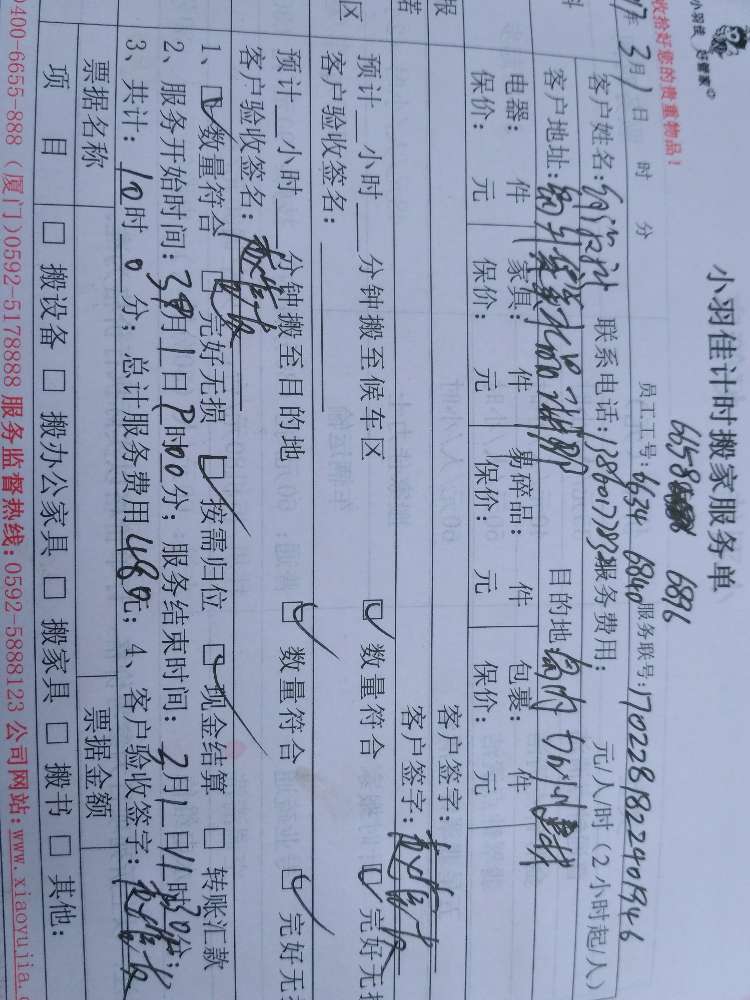 小羽佳 好管家
小羽佳计时搬家服务单
收拾好您的贵重物品！
6658 6896
年3月1日 时 分 员工工号：6634 6840 服务联号：1702281822401946
客户姓名： 联系电话：13860177832 服务费用： 元/人/时（2小时起/人）
客户地址： 目的地：
电器： 件 家具： 件 易碎品： 件 包裹： 件
保价： 元 保价： 元 保价： 元 保价： 元
报 客户签字：
若 客户签字：
区 预计 小时 分钟搬至候车区 数量符合 完好无损
客户验收签名：
预计 小时 分钟搬至目的地 数量符合 完好无损
客户验收签名：
1、数量符合 完好无损 按需归位 现金结算 转账汇款
2、服务开始时间：3月1日 时00分；服务结束时间：3月1日11时30分；
3、共计：10时0分；总计服务费用480元；4、客户验收签字：
票据名称 票据金额
项目 搬设备 搬办公家具 搬家具 搬书 其他：
0400-6655-888（厦门）0592-5178888 服务监督热线：0592-5888123 公司网站：www.xiaoyujia.c